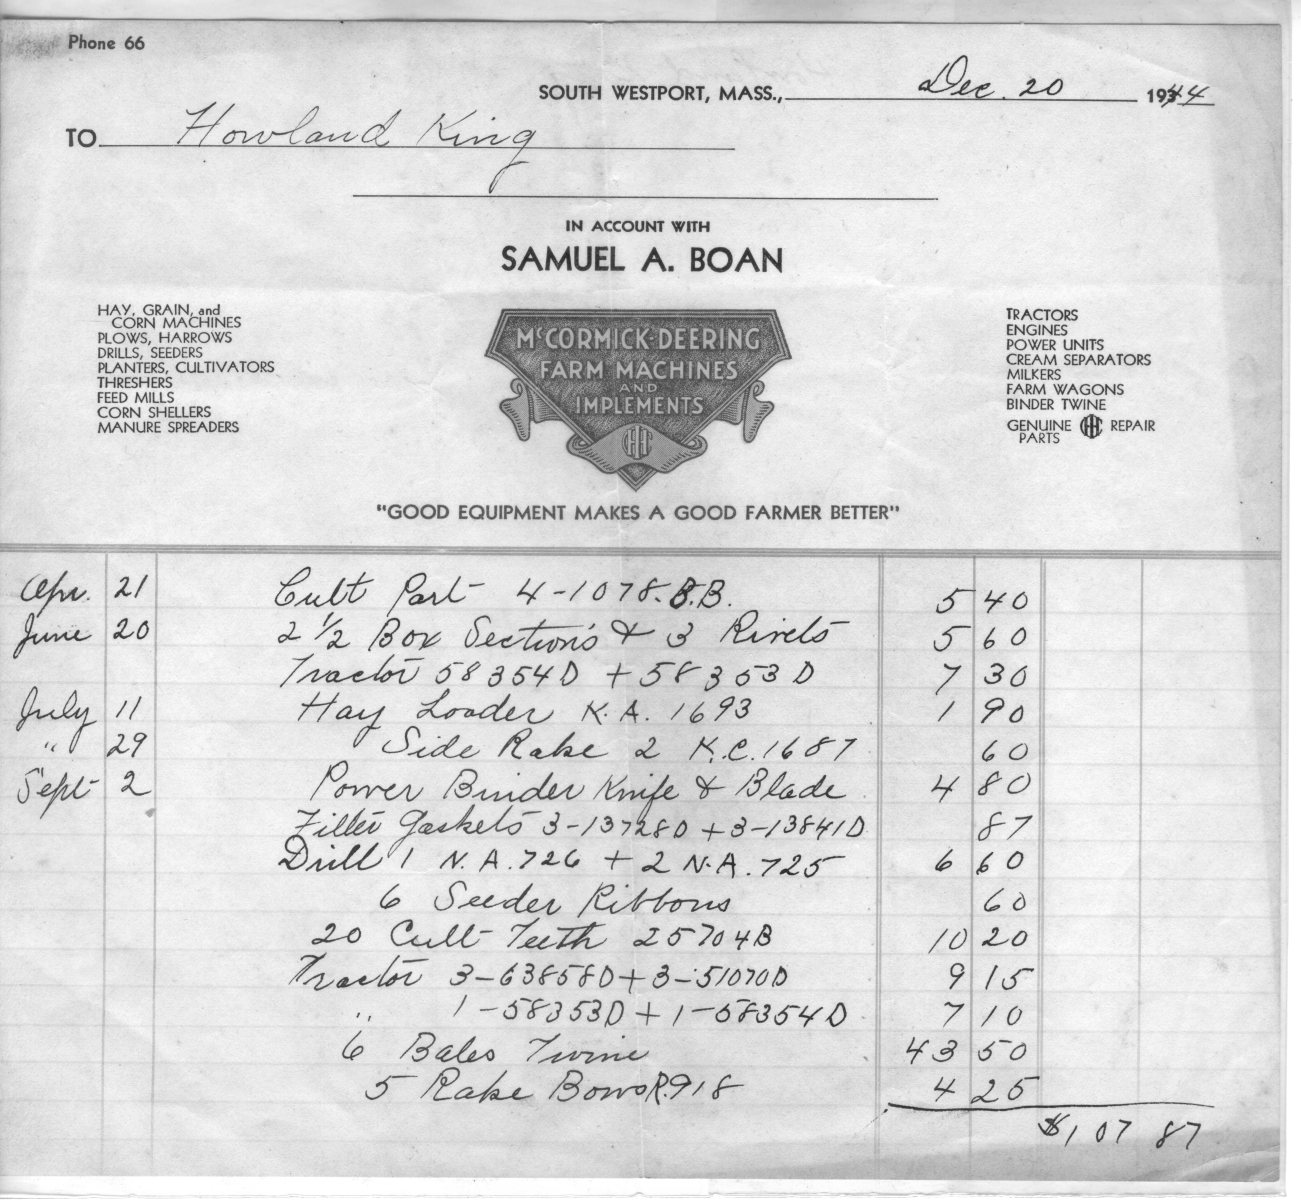 Phone 66
SOUTH WESTPORT, MASS., Dec. 20 1944
TO Howland King
IN ACCOUNT WITH
SAMUEL A. BOAN
HAY, GRAIN, and
CORN MACHINES
PLOWS, HARROWS
DRILLS, SEEDERS
PLANTERS, CULTIVATORS
THRESHERS
FEED MILLS
CORN SHELLERS
MANURE SPREADERS
McCORMICK-DEERING
FARM MACHINES
AND
IMPLEMENTS
IHC
TRACTORS
ENGINES
POWER UNITS
CREAM SEPARATORS
MILKERS
FARM WAGONS
BINDER TWINE
GENUINE IHC REPAIR
PARTS
"GOOD EQUIPMENT MAKES A GOOD FARMER BETTER"
Apr. 21 Cult Part 4-1078.B.B. 5 40
June 20 2 1/2 Box Section's & 3 Rivets 5 60
Tractor 58354D + 58353D 7 30
July 11 Hay Loader K.A. 1693 1 90
" 29 Side Rake 2 K.C. 1687 60
Sept 2 Power Binder Knife & Blade 4 80
Filter Gaskets 3-13728D + 3-13841D 87
Drill 1 N.A. 726 + 2 N.A. 725 6 60
6 Seeder Ribbons 60
20 Cult Teeth 25704B 10 20
Tractor 3-63858D + 3-51070D 9 15
" 1-58353D + 1-58354D 7 10
6 Bales Twine 43 50
5 Rake Bows R.918 4 25
$107 87